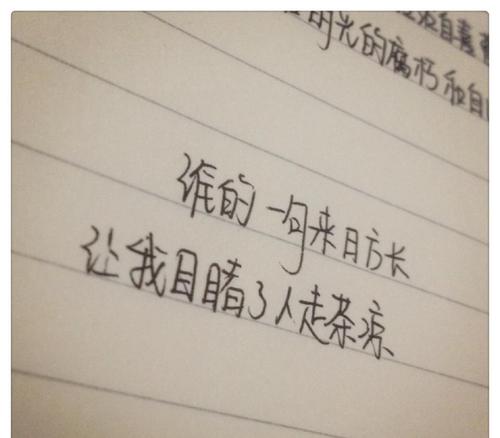 光的腐朽和自
谁的一句来日方长
让我目睹了人走茶凉